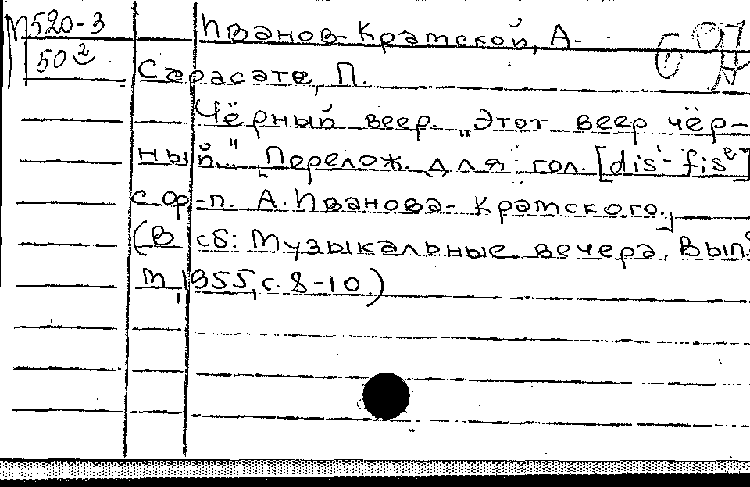 М520-3
50²
Иванов-Крамской, А.
Сарасате, П.
Чёрный веер. "Этот веер чёр-
ный." [Перелож. для гол. [dis'-fis²]
с ф.-п. А. Иванова-Крамского.]
(В сб: Музыкальные вечера. Вып.
М, 1955, с. 8-10.)